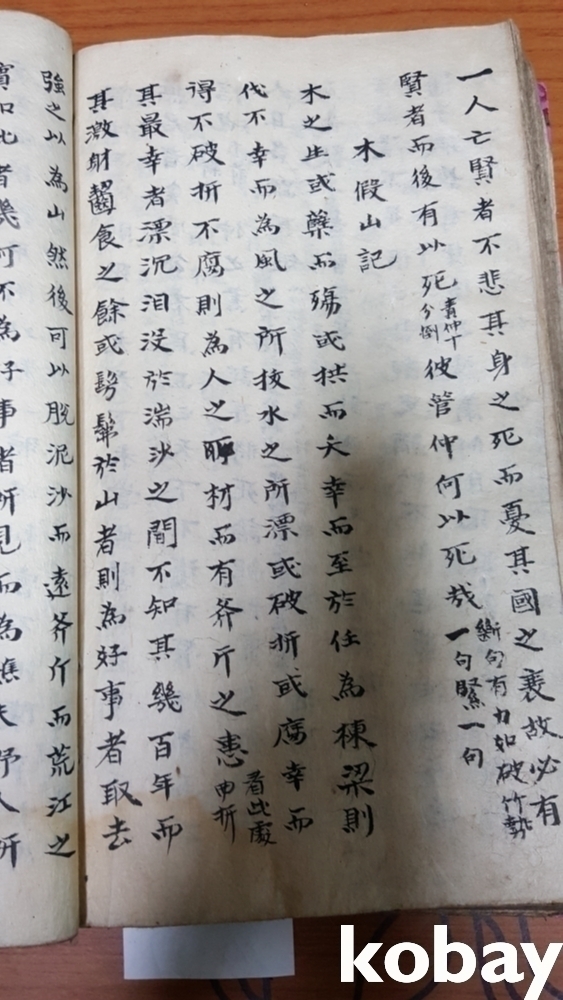 一人亡賢者不悲其身之死而憂其國之衰故必有
賢者而後有以死責仲下分倒彼管仲何以死哉斷句有力如破竹勢一句緊一句
木假山記
木之生或蘖而殤或拱而夭幸而至於任為棟梁則
代不幸而為風之所拔水之所漂或破折或腐幸而
得不破折不腐則為人之所材而有斧斤之患看此處申折
其最幸者漂沉汩没於湍沙之間不知其幾百年而
其激射齧食之餘或髣髴於山者則為好事者取去
強之以為山然後可以脫泥沙而遠斧斤而荒江之
濆如此者幾何不為好事者所見而為樵夫野人所
kobay